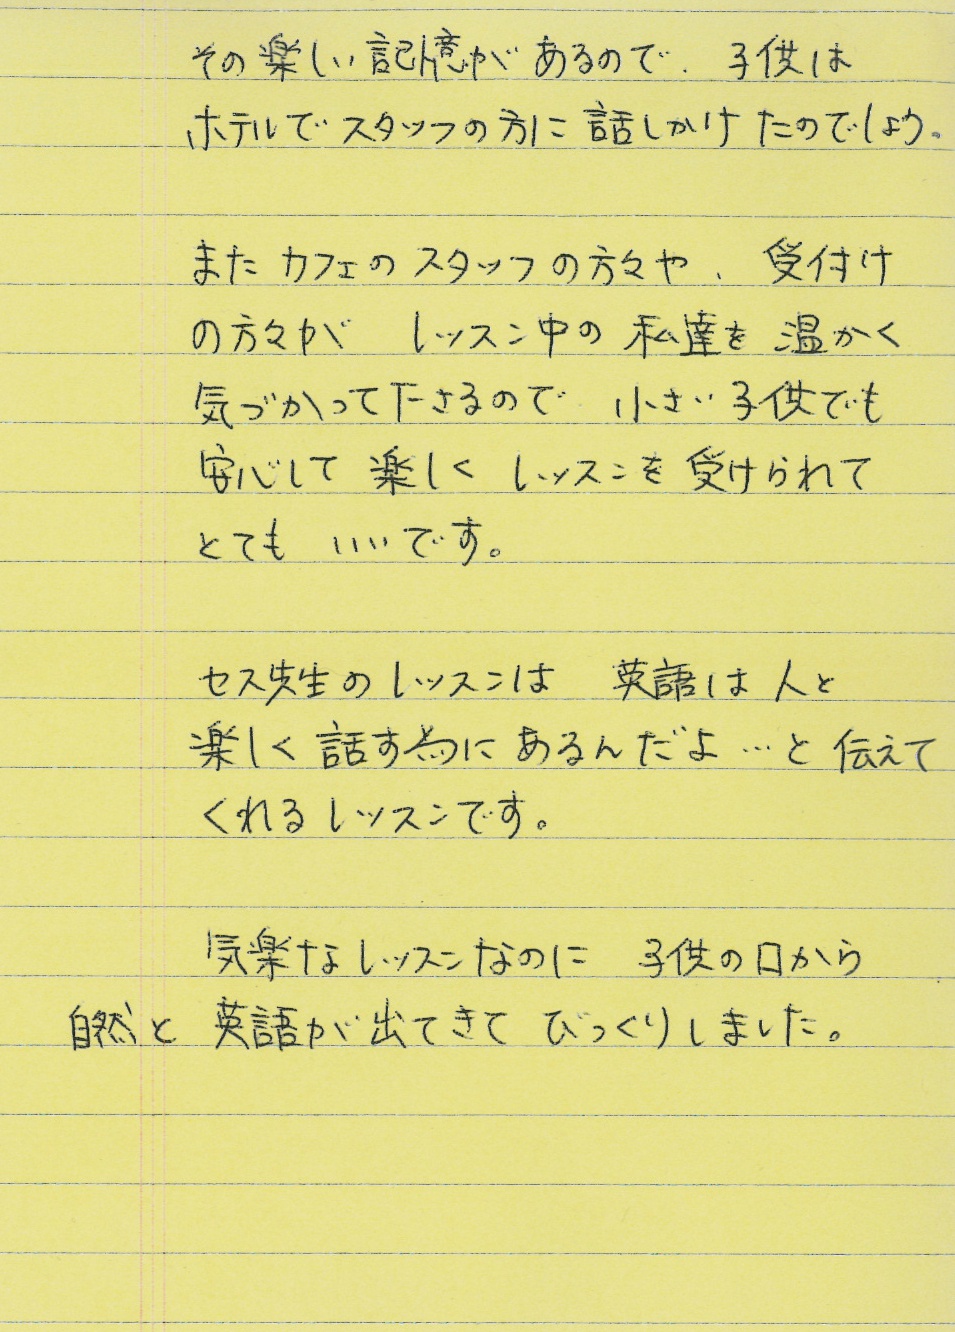 その楽しい記憶があるので、子供は
ホテルでスタッフの方に話しかけたのでしょう。
またカフェのスタッフの方々や、受付け
の方々が レッスン中の私達を温かく
気づかって下さるので 小さい子供でも
安心して楽しくレッスンを受けられて
とても いいです。
セス先生のレッスンは 英語は人と
楽しく話す為にあるんだよ…と伝えて
くれるレッスンです。
気楽なレッスンなのに 子供の口から
自然と 英語が出てきてびっくりしました。